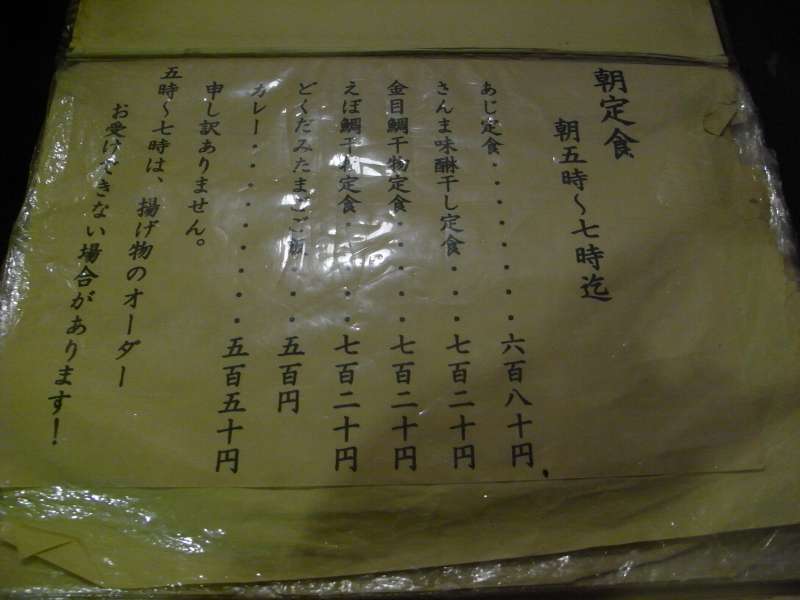 朝定食
朝五時~七時迄
あじ定食・・・・・・・六百八十円
さんま味醂干し定食・・・七百二十円
金目鯛干物定食・・・・・七百二十円
えぼ鯛干物定食・・・・・七百二十円
どくだみたまごご飯・・・五百円
カレー・・・・・・・・・五百五十円
申し訳ありません。
五時~七時は、揚げ物のオーダー
お受けできない場合があります!